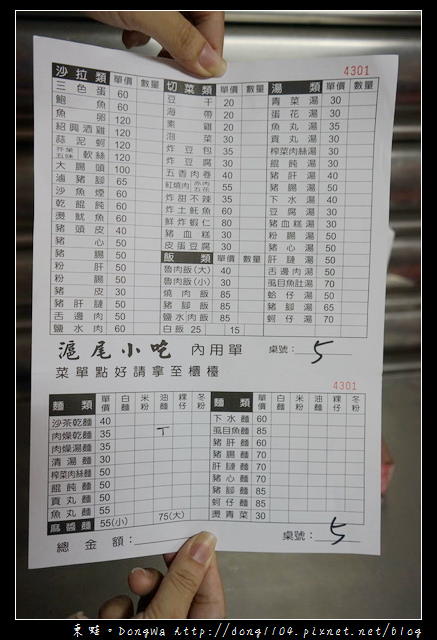 4301
沙拉類 單價 數量 切菜類 單價 數量 湯類 單價 數量
三色蛋 60 豆干 20 青菜湯 30
鮑魚 60 海帶 20 蛋花湯 30
魚卵 120 素雞 20 魚丸湯 35
紹興酒雞 120 泡菜 30 貢丸湯 30
蒜泥蚵 120 炸豆包 35 榨菜肉絲湯 30
芥茉五味軟絲 120 炸豆腐 30 餛飩湯 30
大腸頭 100 五香肉卷 40 豬肝湯 40
滷豬腳 65 紅燒肉 赤肉五花 55 豬腸湯 50
沙魚煙 60 炸甜不辣 35 下水湯 40
乾餛飩 60 炸土魠魚 60 豆腐湯 30
燙魷魚 60 鮮炸蝦仁 80 豬血湯 30
豬頭皮 40 豬血糕 30 粉腸湯 50
豬心 50 皮蛋豆腐 30 豬心湯 50
豬腸 50 飯類 單價 數量 肝臁湯 50
粉肝 50 魯肉飯(大) 40 舌邊肉湯 50
粉腸 50 魯肉飯(小) 30 虱目魚肚湯 70
豬皮 30 燒肉飯 85 蛤仔湯 50
豬肝臁 50 豬腳飯 85 豬腳湯 65
舌邊肉 50 鹽水肉飯 85 蚵仔湯 70
鹽水肉 60 白飯 25 15
滬尾小吃 內用單 桌號: 5
菜單點好請拿至櫃檯
4301
麵類 單價 白麵 米粉 油麵 粿仔 冬粉 麵類 單價 白麵 米粉 油麵 粿仔 冬粉
沙茶乾麵 40 下水麵 60
肉燥乾麵 35 T 虱目魚麵 85
肉燥湯麵 35 豬肝麵 60
清湯麵 30 豬腸麵 70
榨菜肉絲麵 50 肝臁麵 70
餛飩麵 50 豬心麵 70
貢丸麵 50 豬腳麵 85
魚丸麵 55 蚵仔麵 85
麻醬麵 55(小) 75(大) 燙青菜 30
總金額: 桌號: 5
東蛙。DongWa http://dong1104.pixnet.net/blog